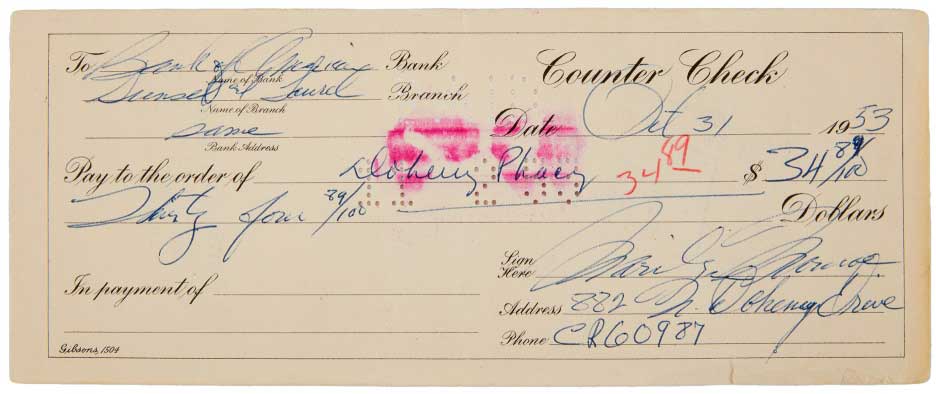 To Bank of America Bank Counter Check
Name of Bank
Sunset and Laurel Branch
Name of Branch
same Date Oct 31 1953
Bank Address
34.89
Pay to the order of Doheny Phacy $ 34 89/100
Thirty four 89/100 Dollars
Sign Here Marilyn Monroe
In payment of
Address 882 N. Doheny Drive
Phone CR60987
Gibsons, 1504